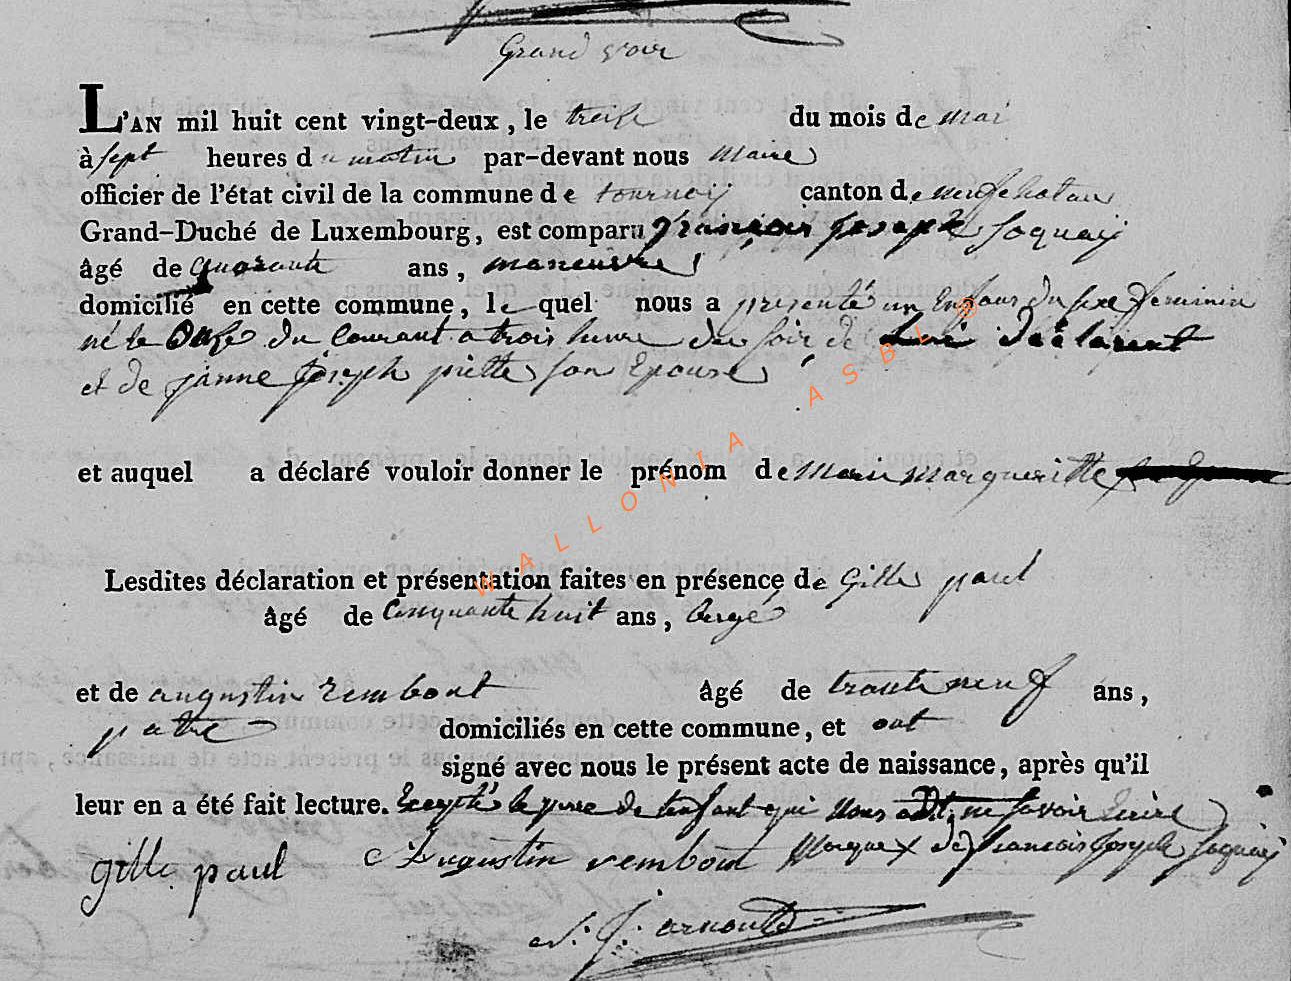 Grand voir
L'AN mil huit cent vingt-deux, le treise du mois de mai
à sept heures du matin par-devant nous maire
officier de l'état civil de la commune de tournay canton de neufchatau
Grand-Duché de Luxembourg, est comparu françois joseph Jaquay
âgé de quarante ans, maneuvre
domicilié en cette commune, le quel nous a presenté un Enfant du sexe feminin
né le onse du courant a trois heure du soir de Lui déclarent
et de janne joseph pirette son Epouse
et auquel a déclaré vouloir donner le prénom de marie margueritte
Lesdites déclaration et présentation faites en présence de Gille paul
âgé de Cinquante huit ans, bergé
et de augustin rembout âgé de trante neuf ans,
patre domiciliés en cette commune, et ont
signé avec nous le présent acte de naissance, après qu'il
leur en a été fait lecture. Excepté le pere de lenfant qui nous a dit ne savoir Ecrire
gille paul Augustin rembout Marque X de francois joseph Jaquay
arnould
WALLONIA ASBL ®